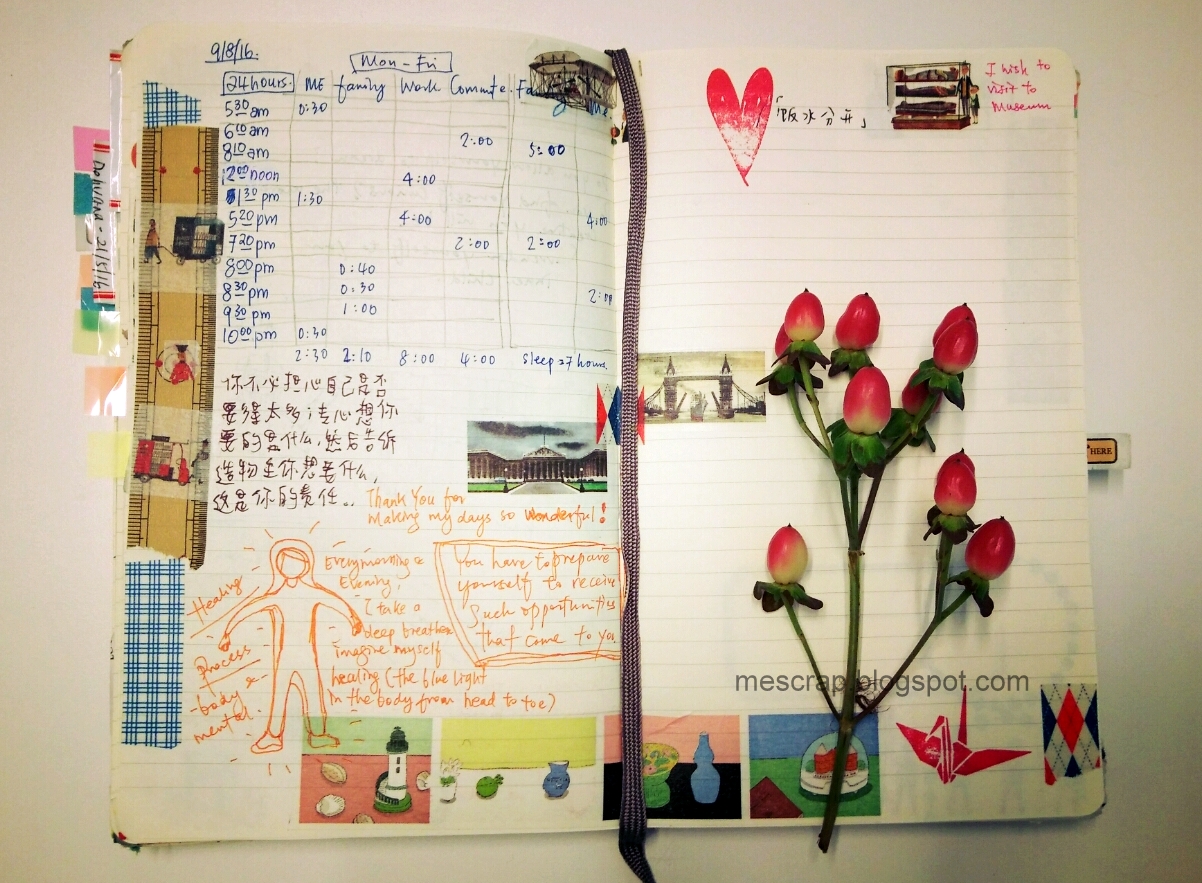 9/8/16.
Mon-Fri
24hours. ME family Work Commute.
5³⁰ am 0:30
6¹⁰ am 2:00
8¹⁰ am 5:00
12⁰⁰ noon 4:00
1³⁰ pm 1:30
5²⁰ pm 4:00 4:00
7²⁰ pm 2:00 2:00
8⁰⁰ pm 0:40
8³⁰ pm 0:30 2:00
9³⁰ pm 1:00
10⁰⁰ pm 0:30
2:30 2:10 8:00 4:00 Sleep=7 hours.
你不必担心自己是否
要得太多；专心想你
要的是什么，然后告诉
造物主你想要什么，
这是你的责任..
Thank You for
making my days so wonderful!
Healing
process
- body &
mental.
Every morning &
Evening,
I take a
deep breathe
imagine myself
healing (the blue light
in the body from head to toe)
You have to prepare
yourself to receive
such opportunities
that come to you.
「饭水分开」
I wish to
visit to
Museum
HERE
mescrap.blogspot.com